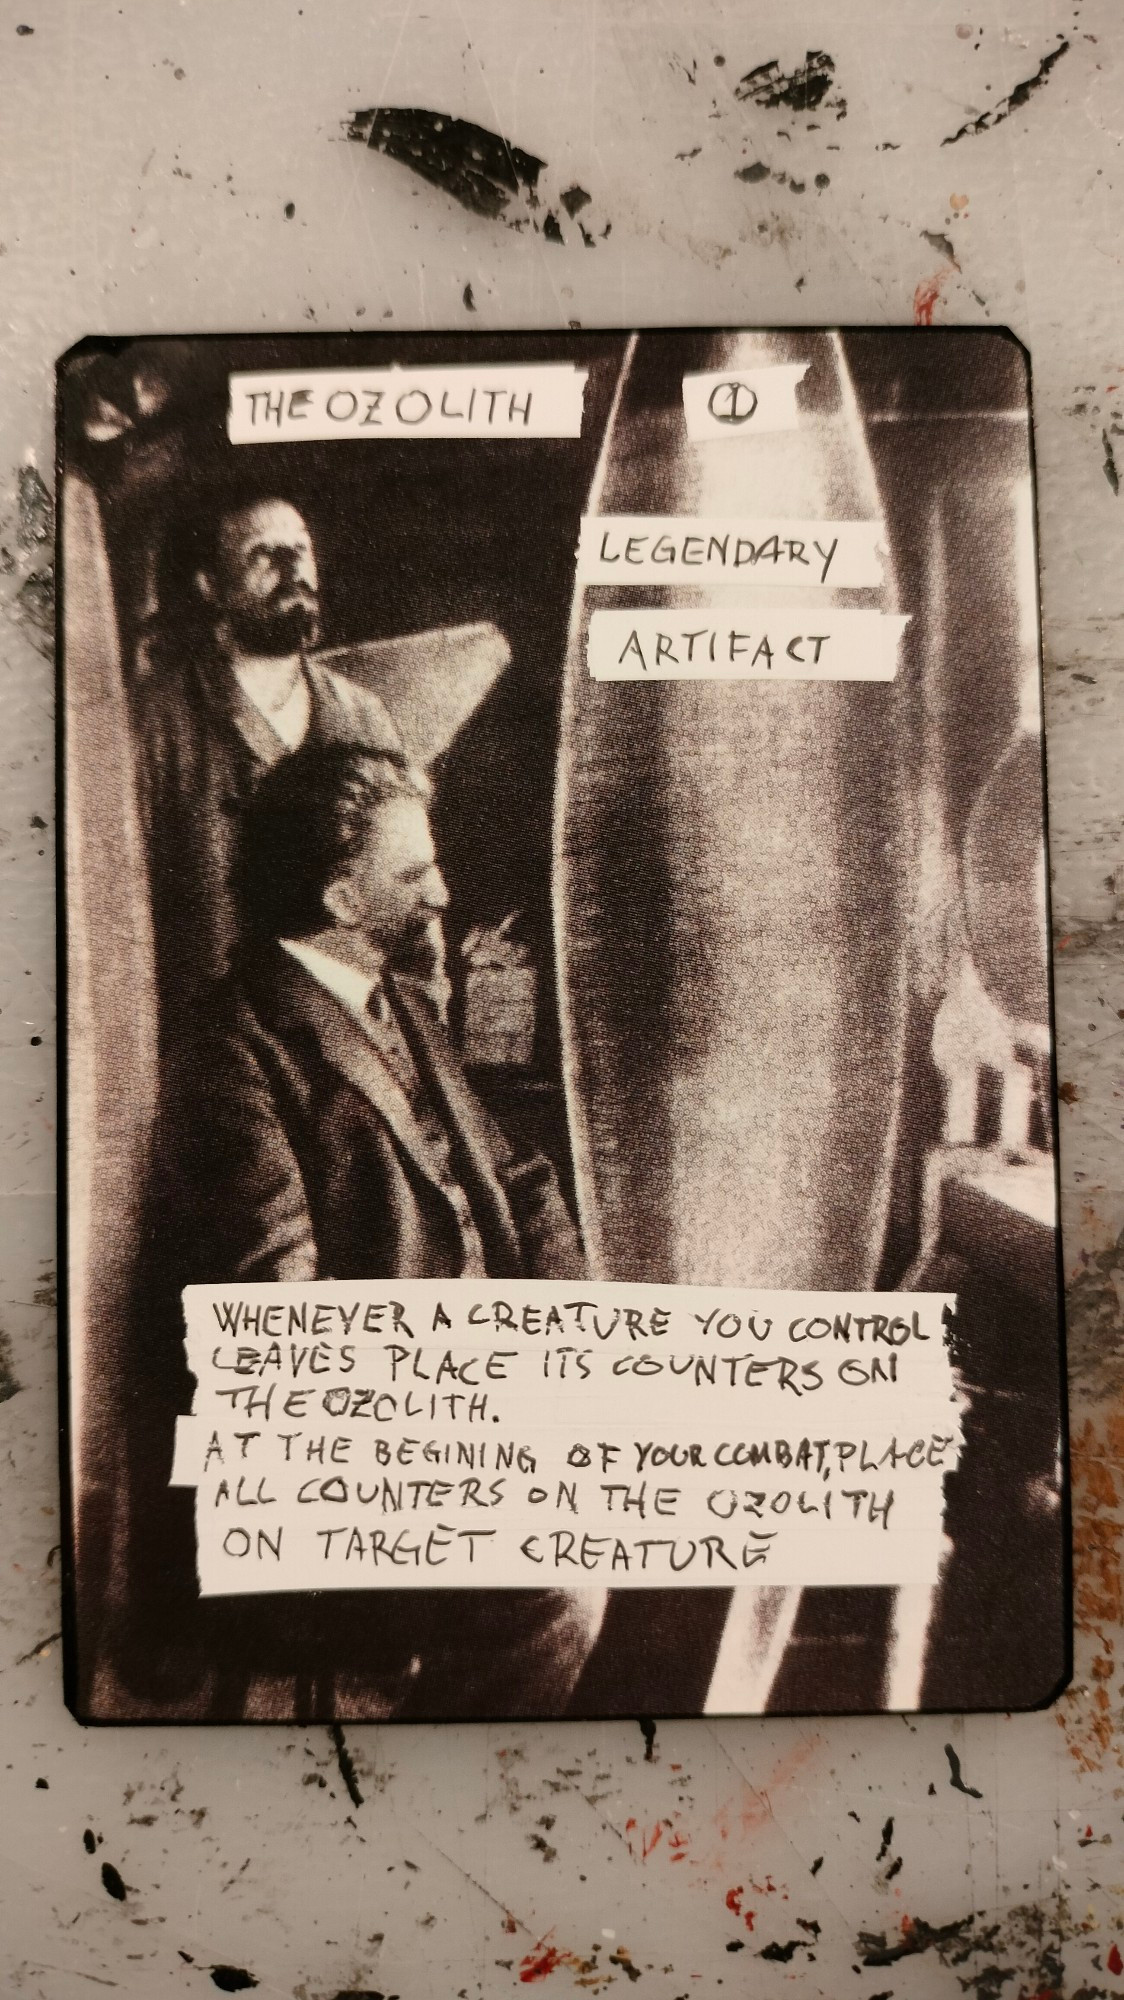 THE OZOLITH
1
LEGENDARY
ARTIFACT
WHENEVER A CREATURE YOU CONTROL
LEAVES PLACE ITS COUNTERS ON
THE OZOLITH.
AT THE BEGINING OF YOUR COMBAT, PLACE
ALL COUNTERS ON THE OZOLITH
ON TARGET CREATURE